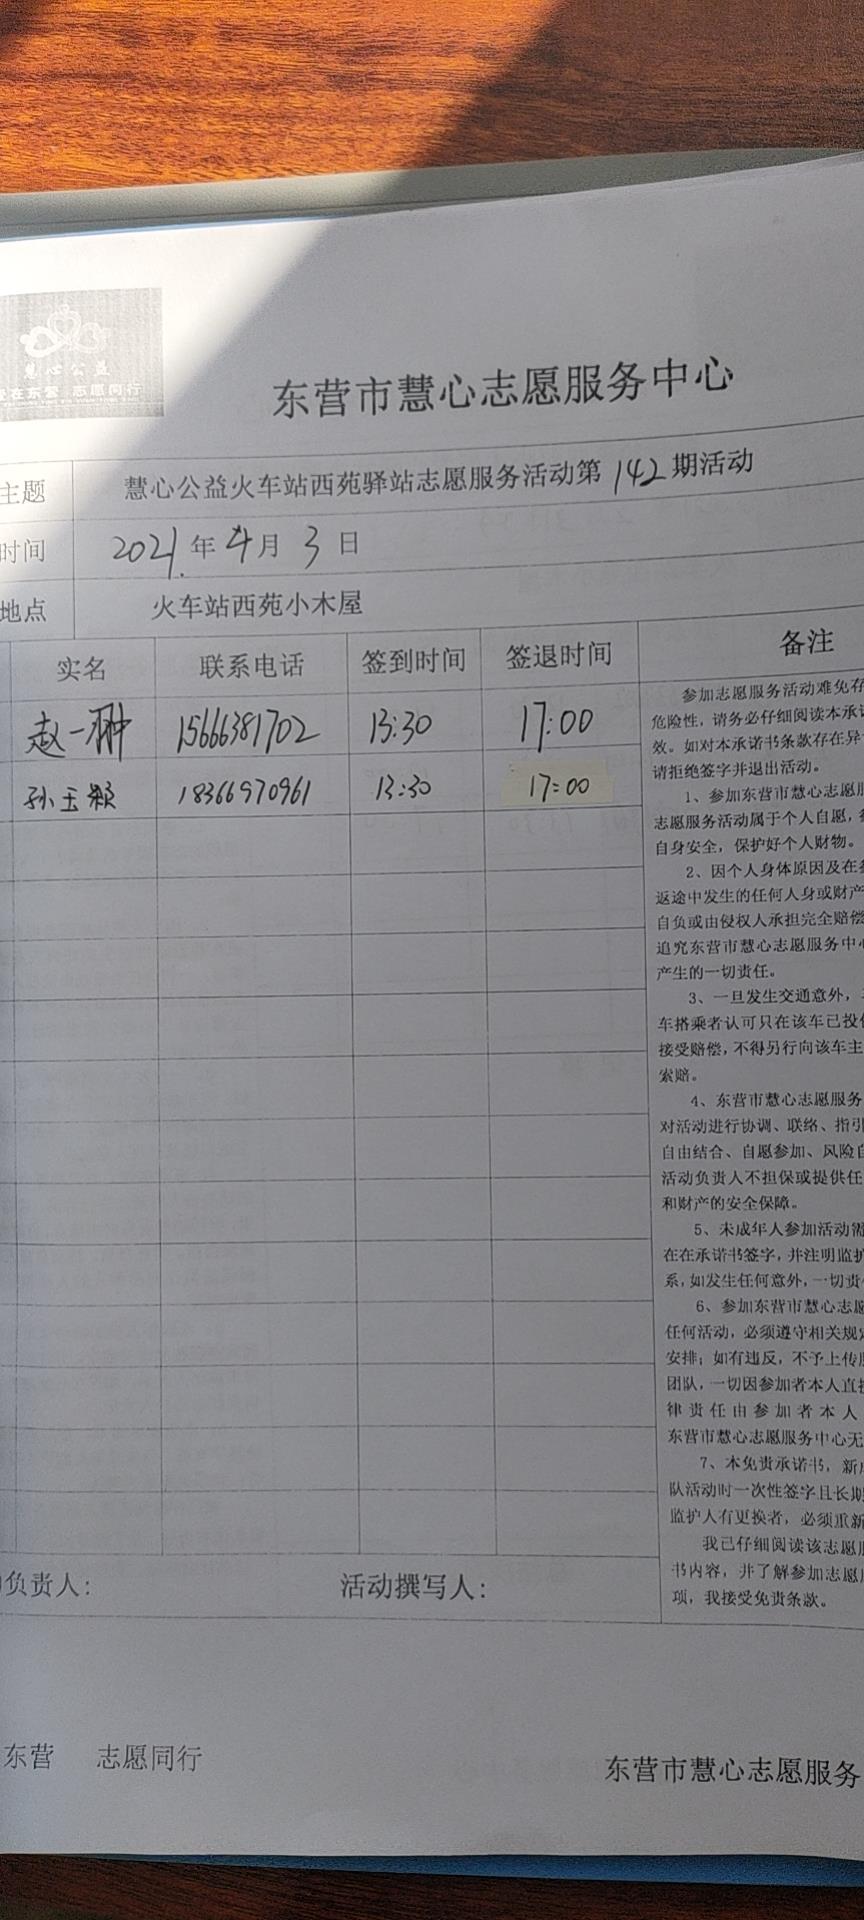 慧心公益
在东营 志愿同行
东营市慧心志愿服务中心
主题 慧心公益火车站西苑驿站志愿服务活动第142期活动
时间 2021年4月3日
地点 火车站西苑小木屋
实名 联系电话 签到时间 签退时间 备注
赵一翀 15666381702 13:30 17:00
孙玉颖 18366970961 13:30 17:00
参加志愿服务活动难免存
危险性，请务必仔细阅读本承诺
效。如对本承诺书条款存在异
请拒绝签字并退出活动。
1、参加东营市慧心志愿服
志愿服务活动属于个人自愿，
自身安全，保护好个人财物。
2、因个人身体原因及在
返途中发生的任何人身或财产
自负或由侵权人承担完全赔偿
追究东营市慧心志愿服务中心
产生的一切责任。
3、一旦发生交通意外，
车搭乘者认可只在该车已投保
接受赔偿，不得另行向该车主
索赔。
4、东营市慧心志愿服务
对活动进行协调、联络、指引
自由结合、自愿参加、风险自
活动负责人不担保或提供任
和财产的安全保障。
5、未成年人参加活动需
在在承诺书签字，并注明监护
系，如发生任何意外，一切责
6、参加东营市慧心志愿
任何活动，必须遵守相关规定
安排；如有违反，不予上传
团队，一切因参加者本人直接
律责任由参加者本人
东营市慧心志愿服务中心无
7、本免责承诺书，新
队活动时一次性签字且长期
监护人有更换者，必须重新
我已仔细阅读该志愿服
书内容，并了解参加志愿
项，我接受免责条款。
负责人： 活动撰写人：
东营 志愿同行 东营市慧心志愿服务